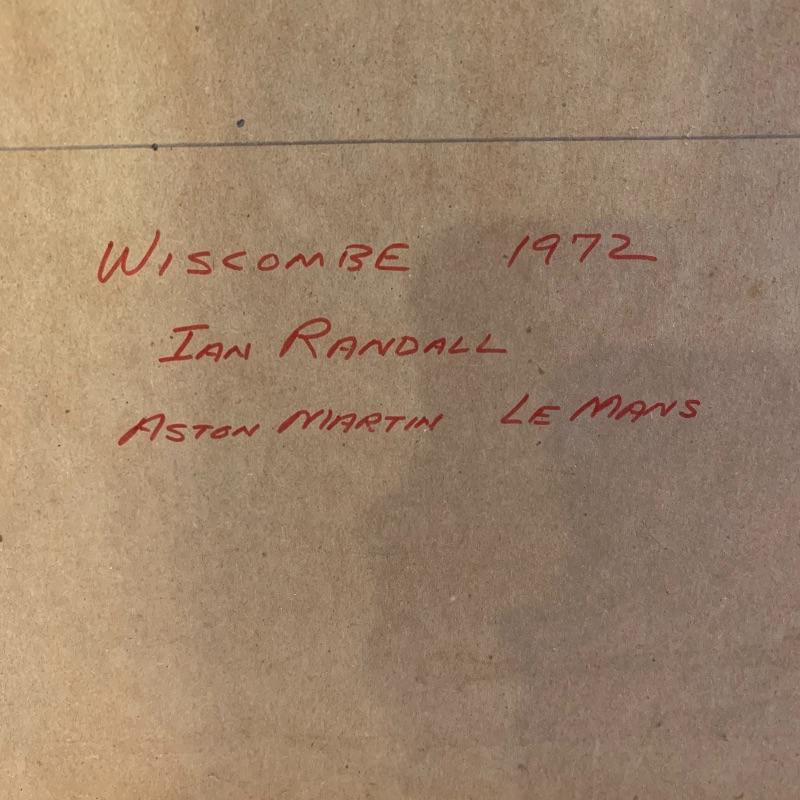 WISCOMBE 1972
IAN RANDALL
ASTON MARTIN LE MANS